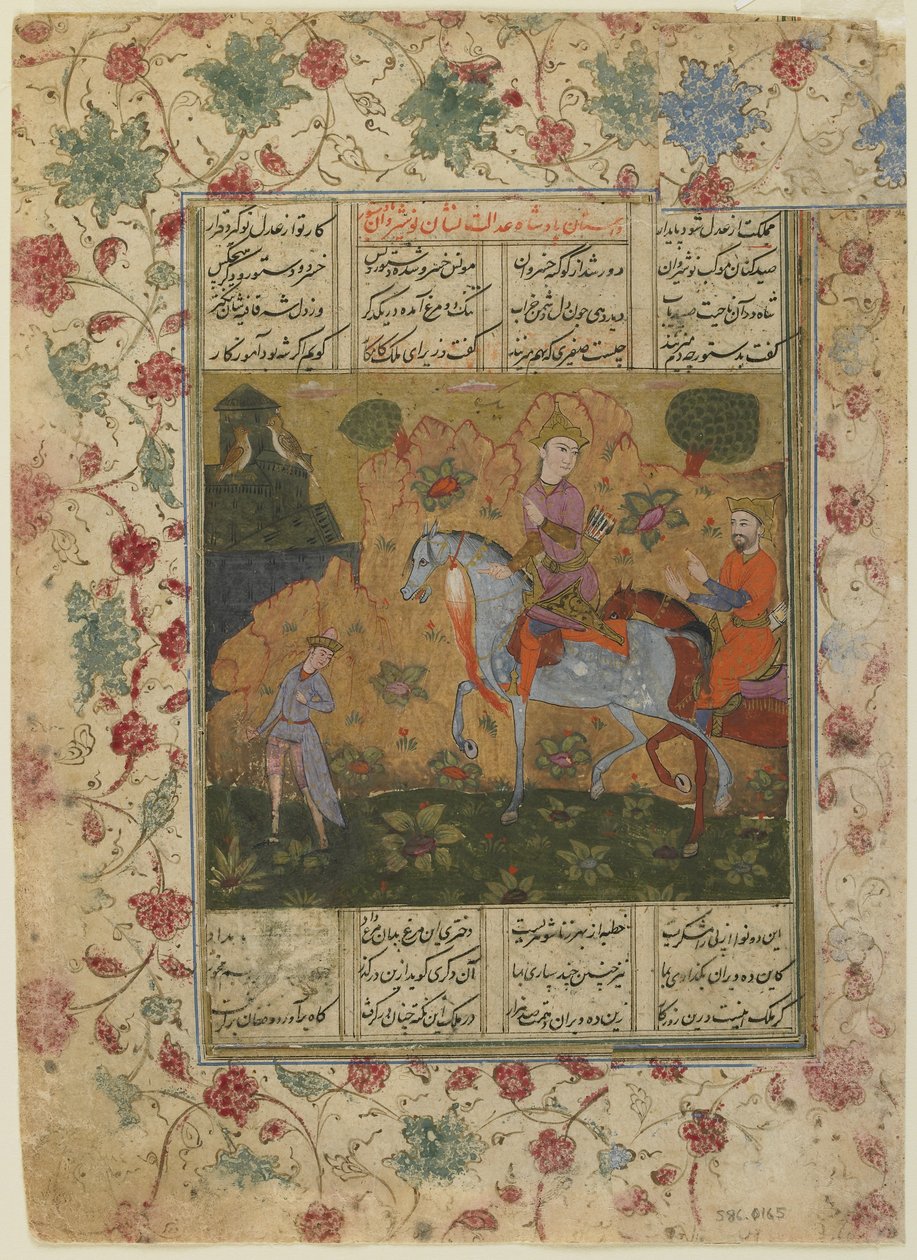 مملکت از عدل شود پایدار داستان پادشاه عدالت نشان نوشیروان با دستور کار تو از عدل تو گیرد قرار
صیدکنان مرکب نوشیروان دور شد از کوکبه خسروان مونس خسرو شده دستور و بس خسرو و دستور و دگر هیچکس
شاه در آن ناحیت صید یاب دید دهی چون دل دشمن خراب تنگ دو مرغ آمده در یکدگر وز دل شه قافیه شان تنگتر
گفت بدستور چه دم میزنند چیست صفیری که بهم میزنند گفت وزیر ای ملک کامکار گویم اگر شه بود آموزگار
این دو نوا از پی رامشگریست خطبه از بهر زناشوهریست دختری این مرغ بدان مرغ داد
کاین ده ویران بگذاری بما نیز چنین چند سپاری بما آن دگری گوید ازین درگذر
گر ملک اینست درین روزگار زین ده ویران دهمت صد هزار در ملک این نکته چنان درگرفت کاه برآورد و فغان برگرفت
S86.0165